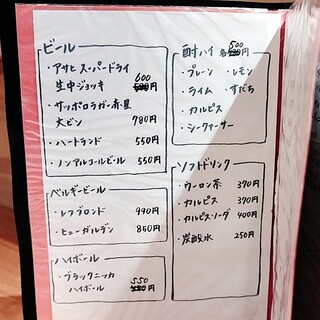 ビール
・アサヒスーパードライ
生中ジョッキ 600円
・サッポロラガー赤星
大ビン 780円
・ハートランド 550円
・ノンアルコールビール 550円
ベルギービール
・レフブロンド 990円
・ヒューガルデン 860円
ハイボール
・ブラックニッカ
ハイボール 550円
酎ハイ 各500円
・プレーン ・レモン
・ライム ・すだち
・カルピス
・シークァーサー
ソフトドリンク
・ウーロン茶 370円
・カルピス 370円
・カルピスソーダ 400円
・炭酸水 250円